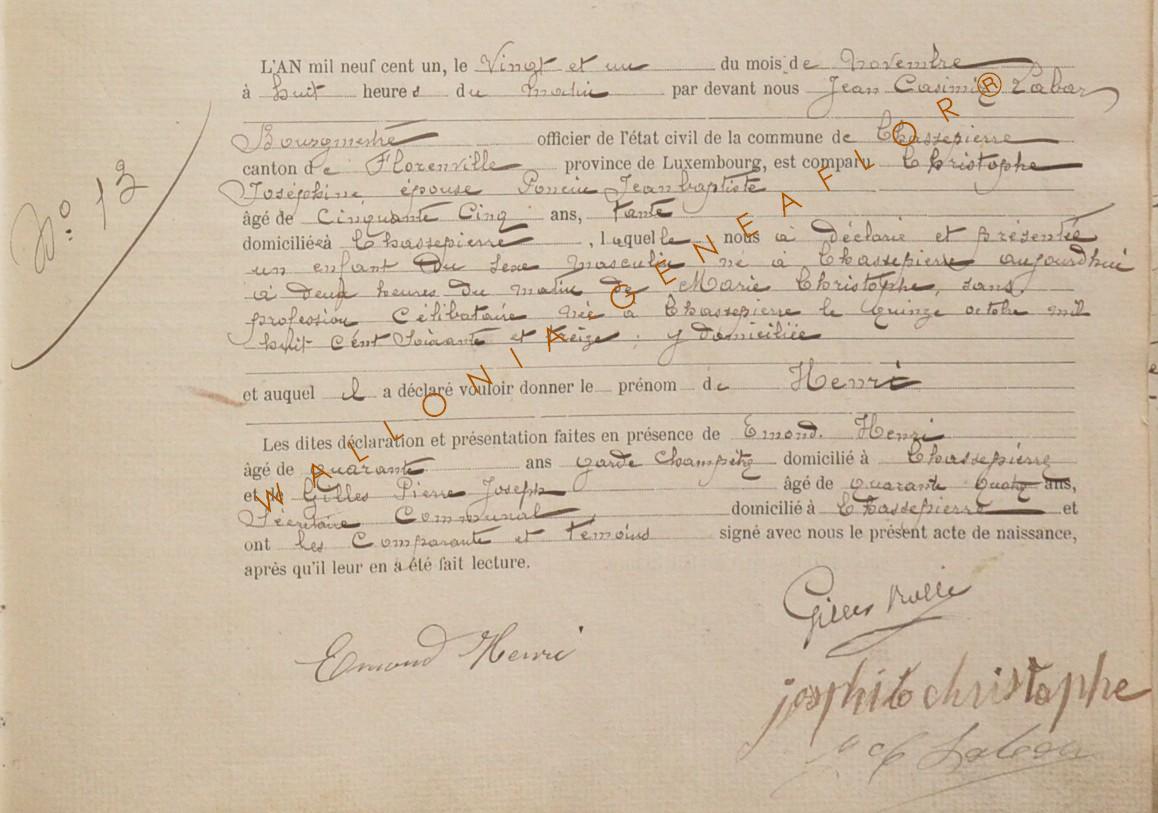 L'AN mil neuf cent un, le Vingt et un du mois de Novembre
à huit heures du Matin par devant nous Jean Casimir Labar
Bourgmestre officier de l'état civil de la commune de Chassepierre
canton de Florenville province de Luxembourg, est comparu Christophe
Joséphine, épouse Poncin Jeanbaptiste
âgé de Cinquante Cinq ans, tante
domiciliée à Chassepierre, laquelle nous a déclaré et présenté
un enfant Du sexe masculin né à Chassepierre aujourd'hui
à deux heures Du matin de Marie Christophe, sans
profession Célibataire née à Chassepierre le Quinze octobre mil
huit Cent Soixante et treize ; y domiciliée
No: 13
et auquel il a déclaré vouloir donner le prénom de Henri
Les dites déclaration et présentation faites en présence de Emond. Henri
âgé de quarante ans garde Champêtre domicilié à Chassepierre
et Gilles Pierre Joseph âgé de quarante Quatre ans,
Sécretaire Communal domicilié à Chassepierre et
ont les Comparante et témoins signé avec nous le présent acte de naissance,
après qu'il leur en a été fait lecture.
Gilles
Emond Henri
christophe
WALLONIA GENEAFLOR®